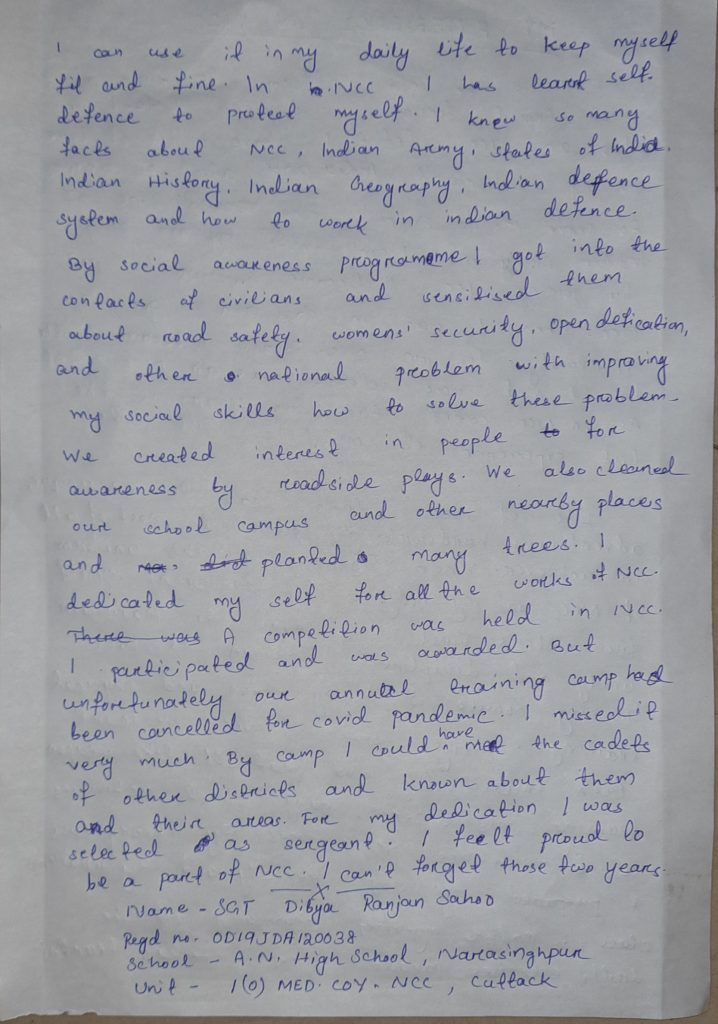 I can use it in my daily life to keep myself
fit and fine. In NCC I has learnt self-
defence to protect myself. I knew so many
facts about NCC, Indian Army, states of India,
Indian History, Indian Geography, Indian defence
system and how to work in indian defence.
By social awareness programme I got into the
contacts of civilians and sensitised them
about road safety, womens' security, open defication,
and other national problem with improving
my social skills how to solve these problem.
We created interest in people to for
awareness by roadside plays. We also cleaned
our school campus and other nearby places
and did planted many trees. I
dedicated my self for all the works of NCC.
There was A competition was held in NCC.
I participated and was awarded. But
unfortunately our annual training camp had
been cancelled for covid pandemic. I missed it
very much. By camp I could have met the cadets
of other districts and known about them
and their areas. For my dedication I was
selected as sergeant. I feelt proud to
be a part of NCC. I can't forget those two years.
X
Name - SGT Dibya Ranjan Sahoo
Regd no. OD19JDA120038
School - A.N. High School, Narasinghpur
Unit - 1(O) MED. COY. NCC, Cuttack